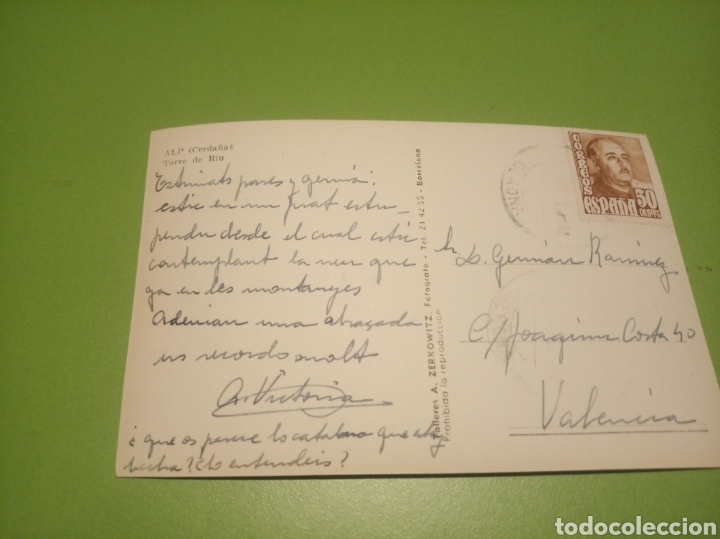 ALP (Cerdaña)
Torre de Riu
Estimats pares y germá,
estic en un prat estu-
pendu desde el cual estic
contemplant la neu que
ya en les montanyes
Adenian una abraçada
us recordo molt
Victoria
¿que os parece lo catalana que estoy
hecha? ¿Lo entendeis?
Talleres A. ZERKOWITZ. Fotografo - Tel. 21 42 55 - Barcelona
Prohibida la reproduccion
CORREOS
ESPAÑA
50
CENTS
Sr. D. Germán Ramirez
C/ Joaquin Costa 40
Valencia
todocoleccion